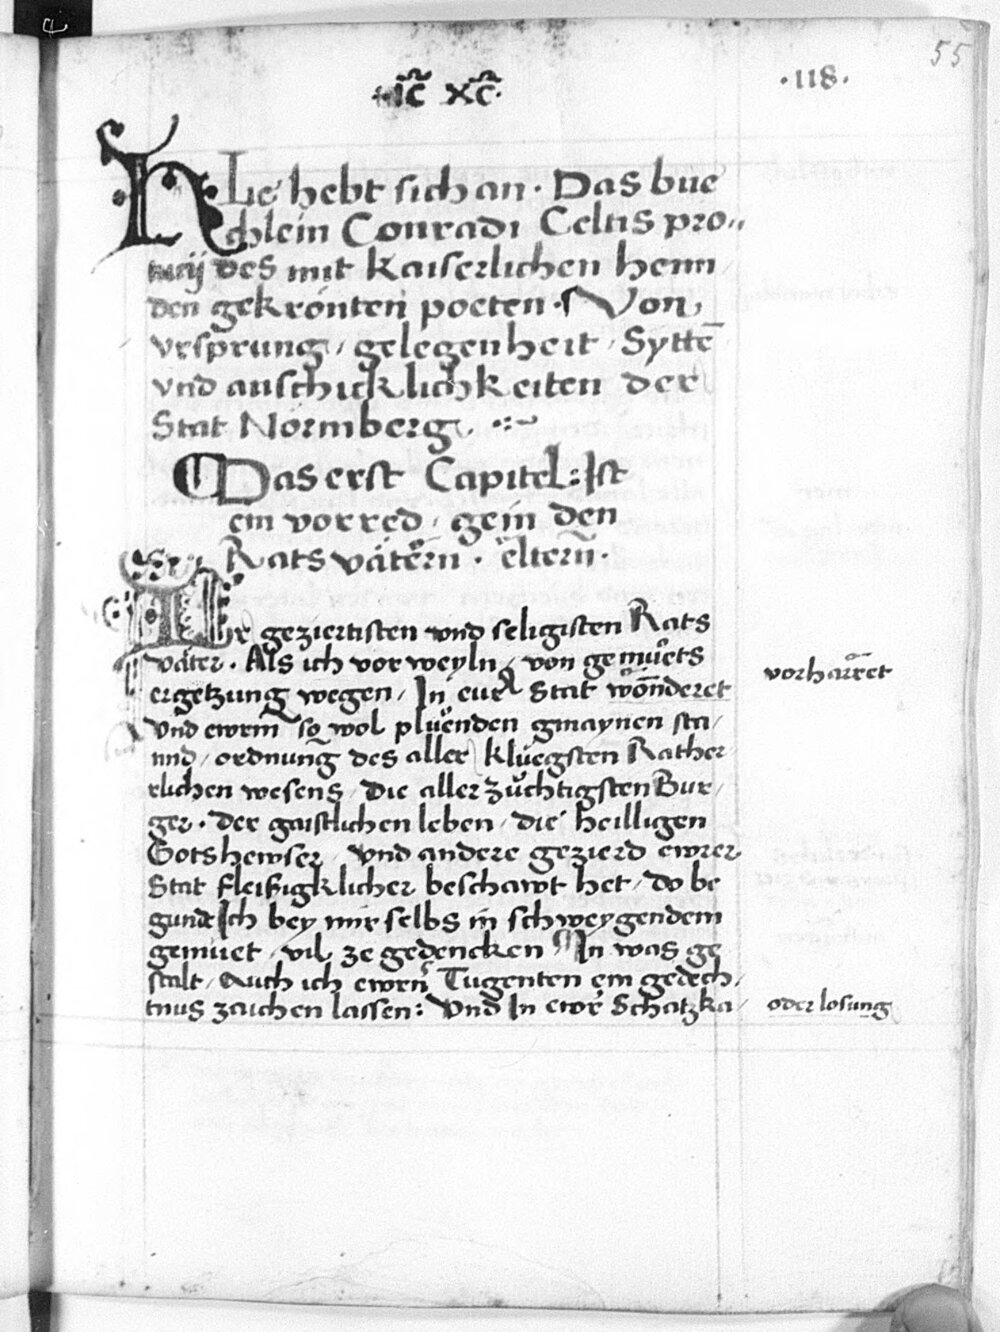 55
·118·
ic̃ xc̃·
HIe hebt sich an · Das bue
chlein Conradi Celtis pro„
tucij des mit kaiserlichen henn
den gekrönten poeten · Von
vrsprung / gelegenheit / Syttē
vnd anschicklichkeiten der
Stat Nörmberg
Das erst Capitel: Ist
ein vorred / gein den
Rats vätern · eltern ·
Ir geziertisten vnd seligisten Rats
väter · Als ich vor weyln / von gemüets
ergetzung wegen / In eur Stat wōnderet
vorharret
vnd ewrm so wol plüenden gmaynen sta/
nnd / ordnung des aller klüegsten Rather/
rlichen wesens / Die aller züchtigsten Bur/
ger · der gaistlichen leben / die heilligen
Gotshewser / vnd andere gezierd ewrer
Stat fleißigklicher beschawt het / do be
gunde Ich bey mir selbs in schweygendem
gemüet / vil ze gedencken / In was ge
stalt / Auch ich ewrn Tugenten ein gedech/
tnus zaichen lassen: Vnd In ewr Schatzka/
oder losung